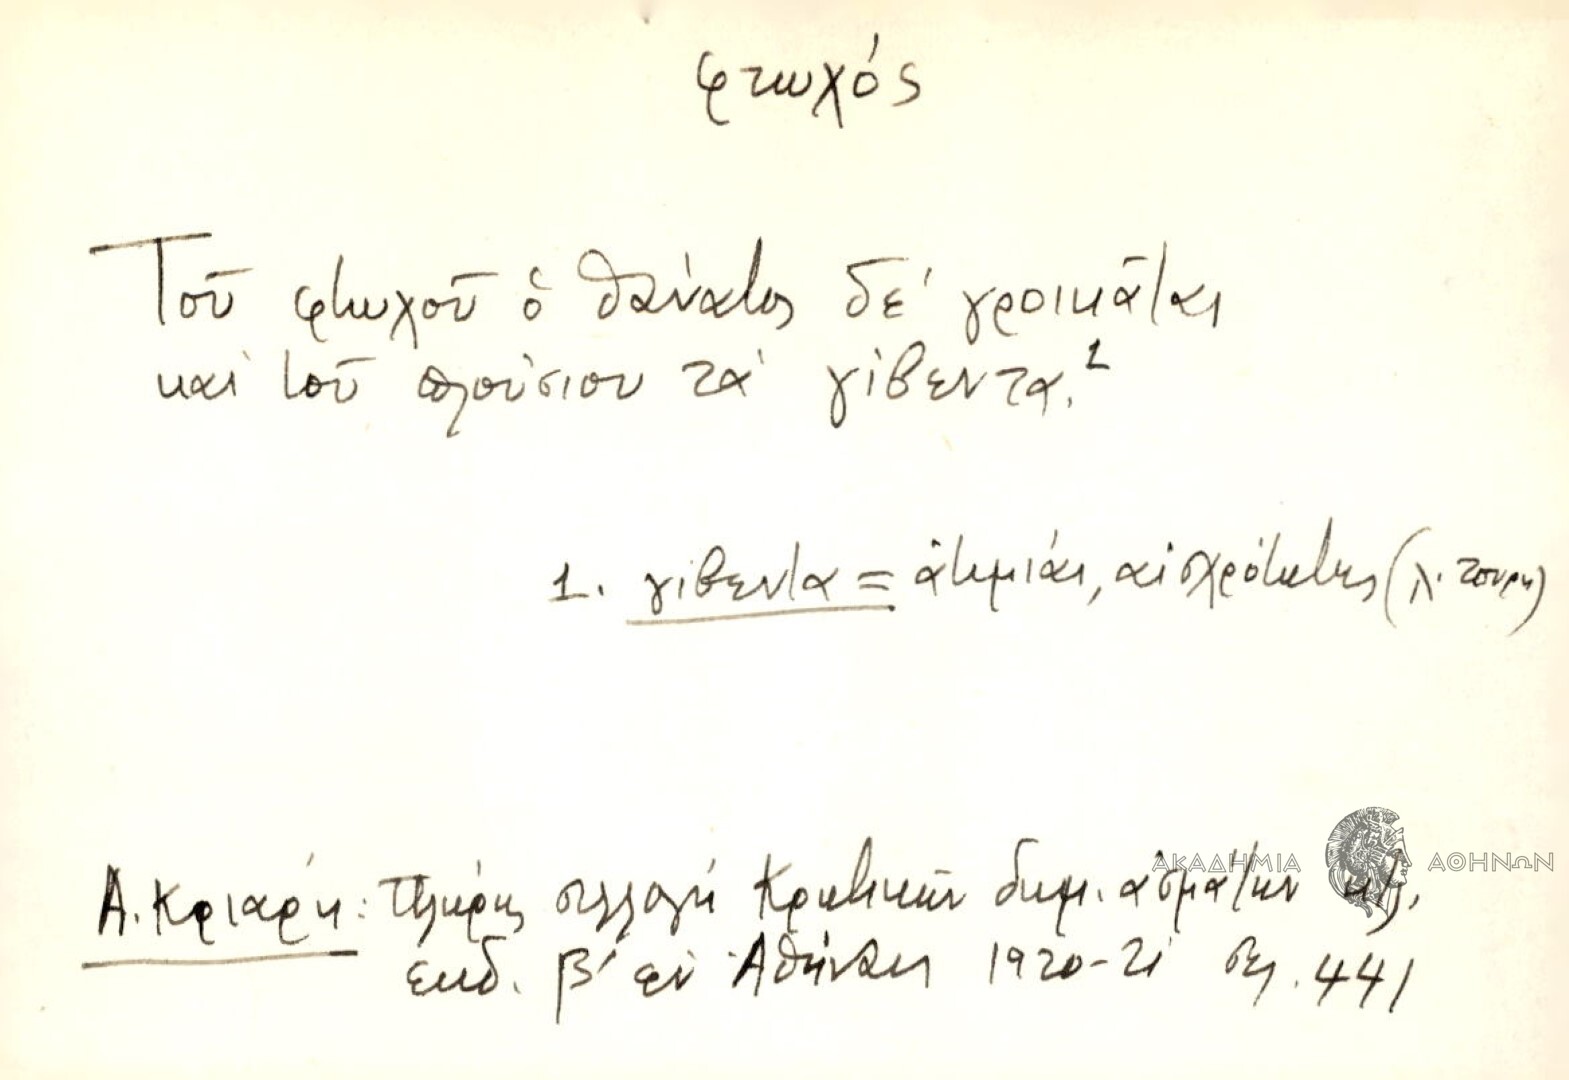 φτωχός
Τοῦ φτωχοῦ ὁ θάνατος δὲ γροικᾶται
καὶ τοῦ πλούσιου τὰ γίβεντα.¹
1. γίβεντα = ἀτιμίαι, αἰσχρότητες (λ. τουρκ)
Α. Κριάρη: Πλήρης συλλογὴ Κρητικῶν δημ. ᾀσμάτων κτλ.
ἐκδ. β' ἐν Ἀθήναις 1920-21 σελ. 441
ΑΚΑΔΗΜΙΑ ΑΘΗΝΩΝ